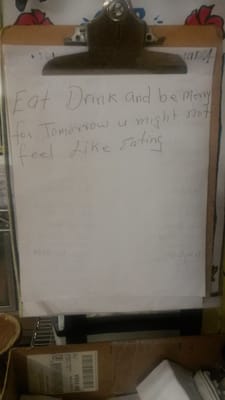 Eat Drink and be merry
for Tomorrow u might not
feel Like Eating